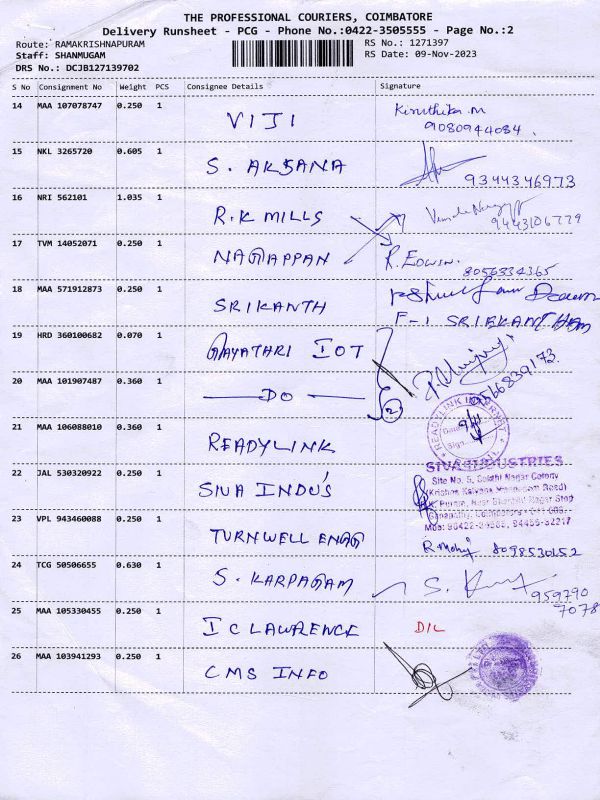 THE PROFESSIONAL COURIERS, COIMBATORE
Delivery Runsheet - PCG - Phone No.:0422-3505555 - Page No.:2
Route: RAMAKRISHNAPURAM RS No.: 1271397
Staff: SHANMUGAM RS Date: 09-Nov-2023
DRS No.: DCJB127139702
S No Consignment No Weight PCS Consignee Details Signature
14 MAA 107078747 0.250 1 VIJI Kiruthika.M
9080944084.
15 NKL 3265720 0.605 1 S. AKSANA
9344346973
16 NRI 562101 1.035 1 R.K MILLS
9443106779
17 TVM 14052071 0.250 1 NAGAPPAN R. EDWIN.
8056334365
18 MAA 571912873 0.250 1 SRIKANTH
F-1 SRIEKANTHAM
19 HRD 360100682 0.070 1 GAYATARI IOT
9566839173.
20 MAA 101907487 0.360 1 DO 2
21 MAA 106088010 0.360 1 READYLINK
READYLINK INTERNET
9/11
Sign
SIVA INDUSTRIES
22 JAL 530320922 0.250 1 SIVA INDU'S
Site No. 5, Gokhi Nagar Colony
23 VPL 943460088 0.250 1 TURNWELL ENGG
R Mohj 8098530152
24 TCG 50506655 0.630 1 S. KARPAGAM
959790
7078
25 MAA 105330455 0.250 1 I C LAWRENCE D/L
26 MAA 103941293 0.250 1 CMS INFO